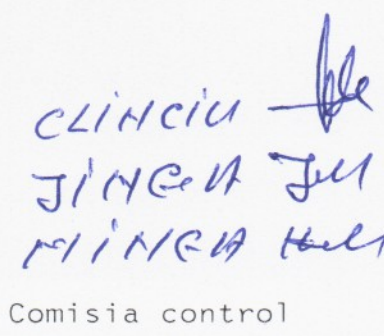 CLINCIU
JINGA
MINEA
Comisia control